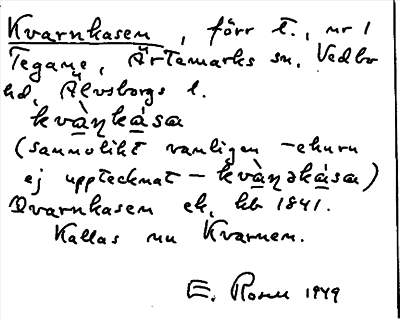 Kvarnkasen, förr t., nr 1
Tegane, Ärtemarks sn, Vedbo
hd, Älvsborgs l.
kvàŋkása
(sannolikt vanligen – ehuru
ej upptecknat – kvàŋəkása)
Qvarnkasen ek. kb 1841.
Kallas nu Kvarnen.
E. Rosell 1949